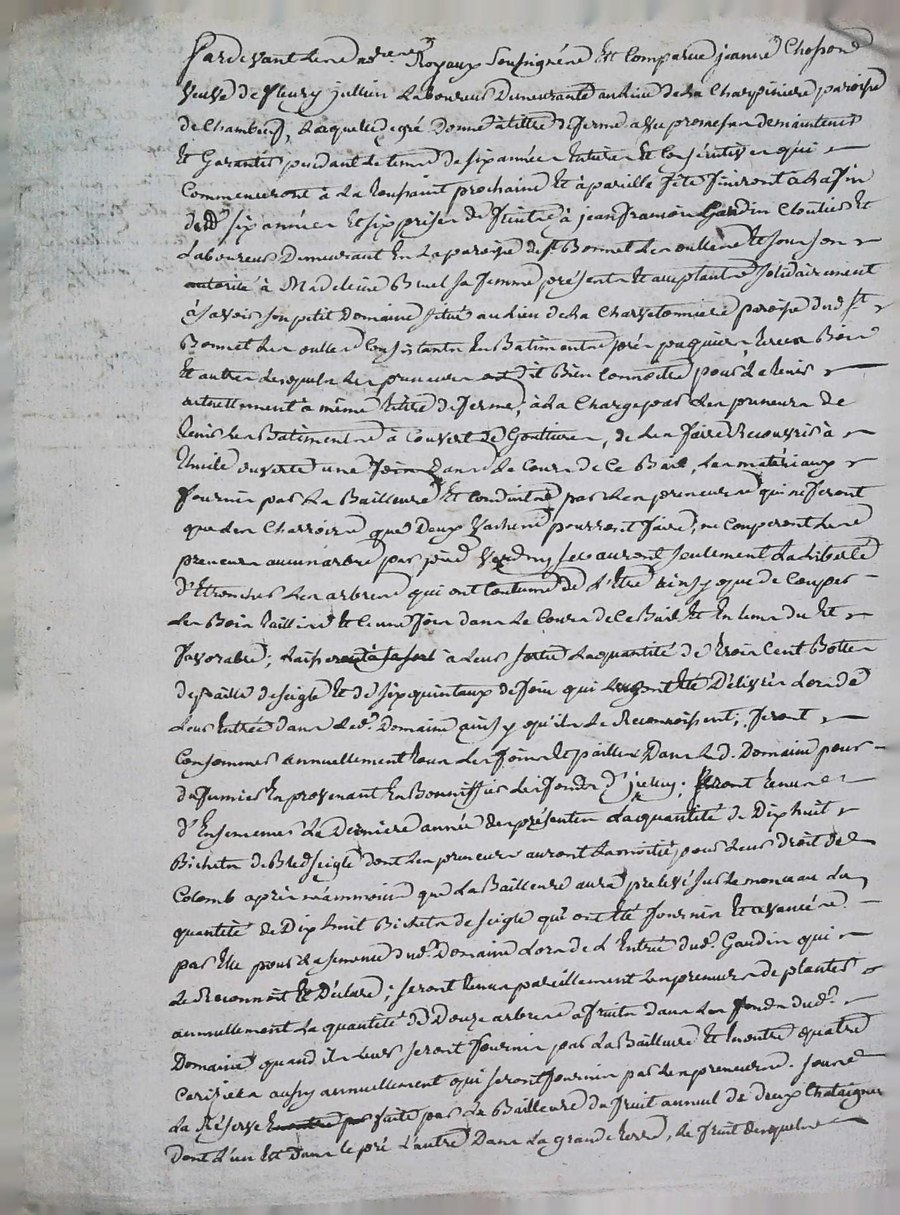 Pardevant les no.res Royaux Soussignés Est Comparue jeanne Chosson
veuve de fleury jullien Laboureur Demeurante au lieu de La Charpiniere paroisse
de Chambœuf, Laquelle de gré Donne à titre de ferme avec promesse de maintenir
Et Garantir pendant Le tems de six années Entieres Et Consécutives qui
Commenceront à La toussaint prochaine Et à pareille fête finiront à La fin
desd. six années Et six prises de fruits à jean françois Gaudin Cloutier Et
Laboureur Demeurant En La paroisse de St Bonnet Les oulles Et sous son
autorité à Madeleine Bruel sa femme présents Et acceptants solidairement
à savoir son petit Domaine situé au Lieu de La Charvetonniere paroisse dud. St
Bonnet Les oulles Consistants En Batiments prés paquiers terres Bois
Et autres Lesquels Les preneurs ont dit Bien Connoitre pour Le tenir
actuellement à même titre de ferme, à La Charge par Les preneurs de
tenir Les Batiments à Couvert de Gouttieres, de Les faire Recouvrir à
thuile ouverte une fois dans Le Cours de Ce Bail, Les matériaux
fournis par La Bailleure Et Conduits par Les preneurs qui ne feront
que Les Charrois que Deux Vaches pourront faire, ne Couperont Les
preneurs aucun arbre par pied Verd ny sec auront seulement La Liberté
d'Etroncher Les arbres qui ont Coutume de L'être ainsy que de Couper
Les Bois taillis Et Ce une fois dans Le Cours de Ce Bail Et En tems du Et
favorable; Laisseront à Leur sortie La quantité de trois Cent Bottes
de paille de seigle Et de six quintaux de foin qui Leurs ont Eté Délivrés Lors de
Leur Entrée dans Led. Domaine ainsy qu'ils Le Reconnoissent; feront
Consommer annuellement tous Les foins Et pailles Dans Led. Domaine pour
du fumier En provenant En Bonniffier Les fonds d'jceluy; seront tenus
d'Ensemencer La Derniere année des présentes La quantité de Dix huit
Bichets de Bled seigle dont Les preneurs auront La moitié pour Leur droit de
Colomb après néammoins que La Bailleure aura prelevé sur Le monceau La
quantité de Dix huit Bichets de seigle qui ont Eté fournis Et avancés
par Elle pour La semence dud. Domaine Lors de L'Entrée dud. Gaudin qui
Le Reconnoit Et Déclare; seront tenus pareillement Les preneurs de planter
annuellement La quantité de Douze arbres à fruits dans Les fonds dud.
Domaine quand ils Leurs seront fournis par La Bailleure Et En outre quatre
Ceriziers aussy annuellement qui seront fournis par Les preneurs. sous
La Réserve faite par La Bailleure du fruit annuel de deux Chataigners
dont L'un Est Dans le pré L'autre Dans La grande terre, Le fruit desquels